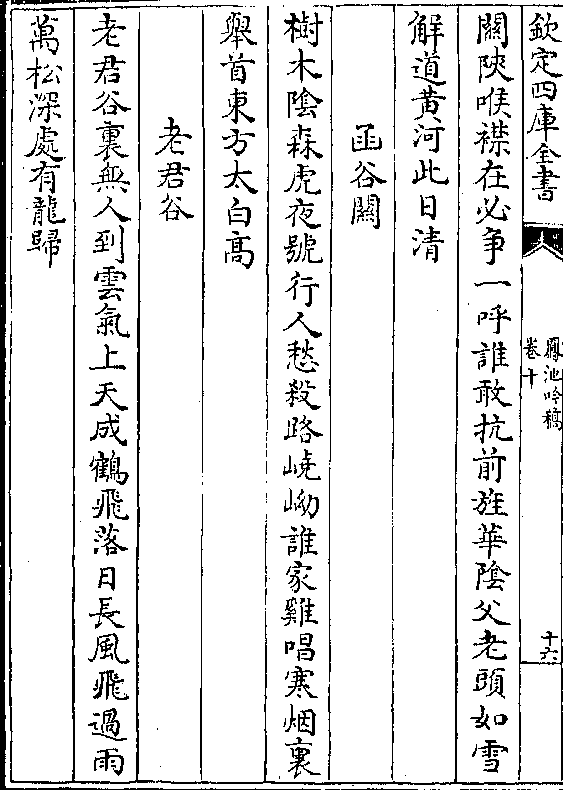 欽定四庫全書
鳳池吟稿
卷十
十六
關陜喉襟在必争一呼誰敢抗前旌華陰父老頭如雪
解道黄河此日清
函谷關
樹木陰森虎夜號行人愁殺路嶢㘭誰家雞唱寒烟裏
舉首東方太白高
老君谷
老君谷裏無人到雲氣上天成鶴飛落日長風飛過雨
萬松深處有龍歸